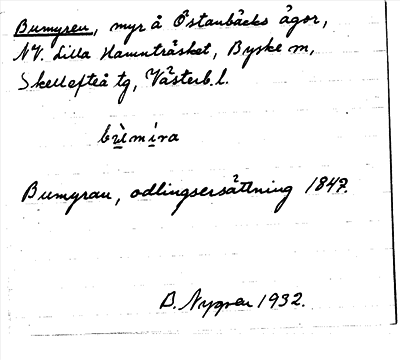 Bumyren, myr å Östanbäcks ägor,
NV. Lilla Hamnträsket, Byske sn,
Skellefteå tg, Västerb. l.
bùmíra
Bumyran, odlingsersättning 1847.
B. Nygren 1932.